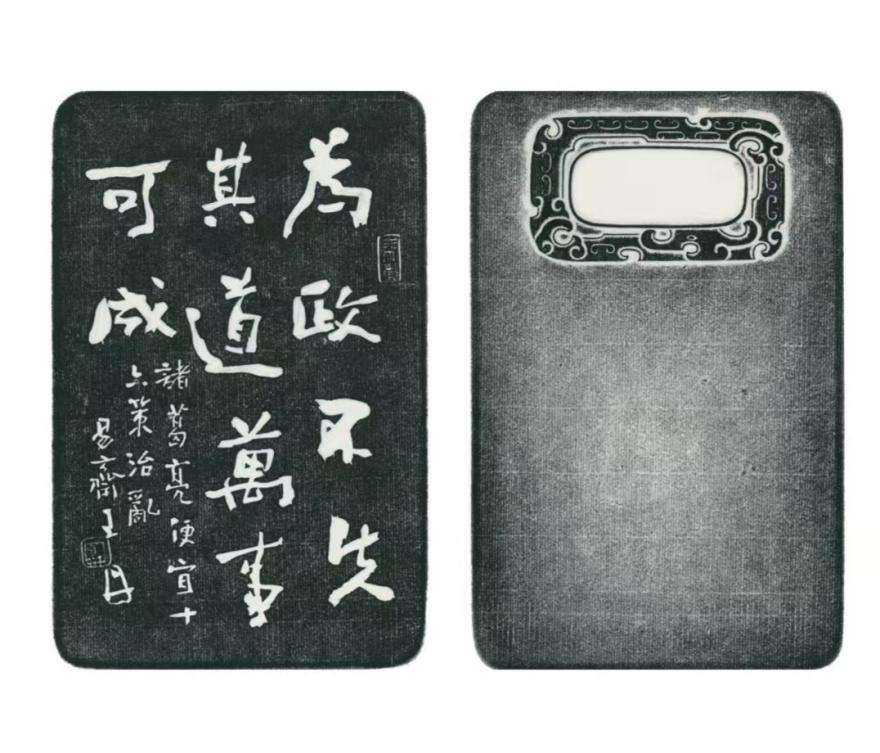 為政不失
其道萬事
可成
諸葛亮便宜十
六策治亂
易齋王丹